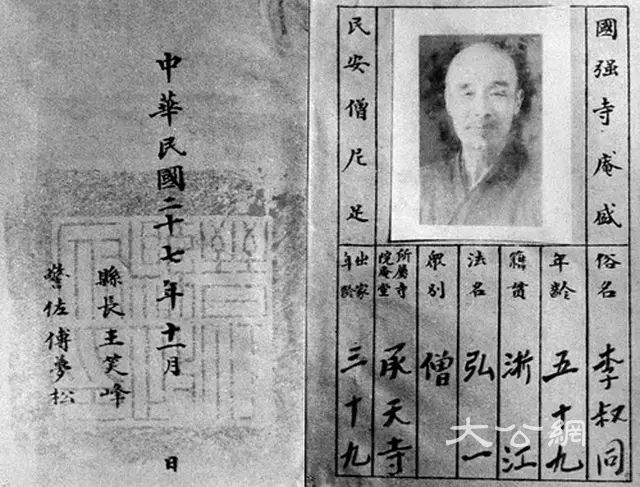 國强寺庵盛
民安僧尼足
俗名 李叔同
年齡 五十九
籍貫 浙江
法名 弘一
眾別 僧
所屬寺院庵堂 承天寺
出家年齡 三十九
中華民國二十七年十一月 日
縣長王笑峰
警佐傅夢松
大公網